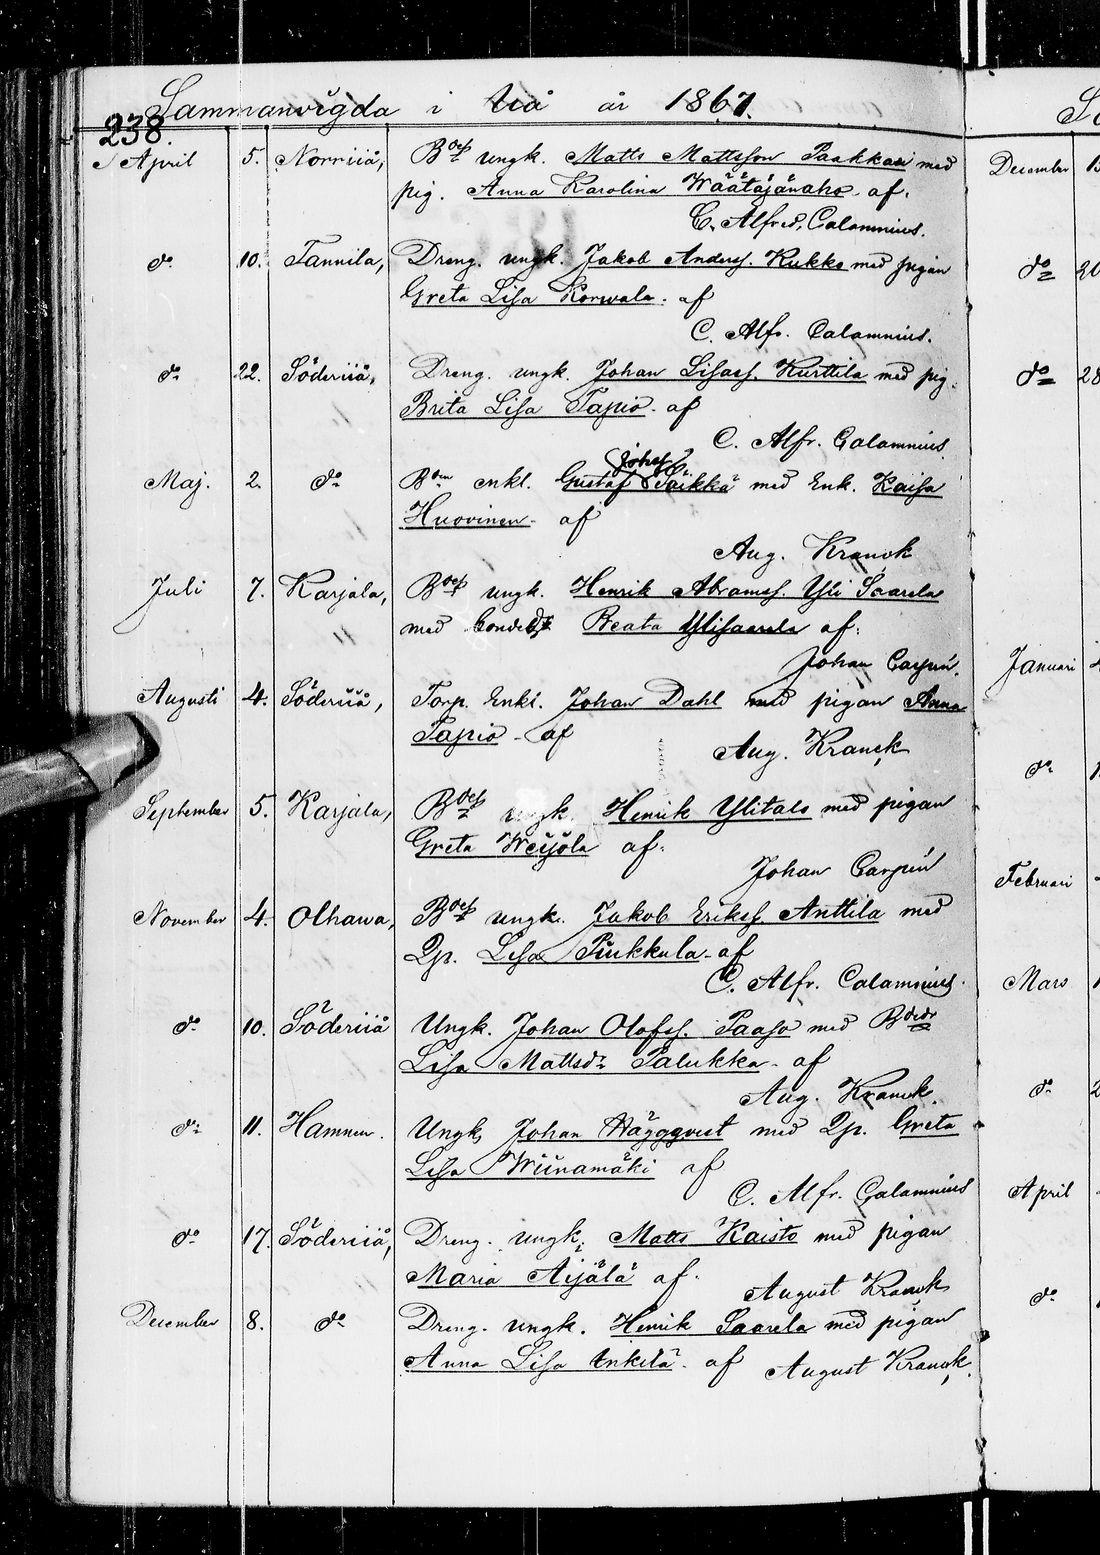 Sammanvigda i Uiå år 1867.
238.
April 5. Norriiå, B:des Ungk. Matts Mattsson Paakkari med
pig. Anna Karolina Wäätäjänaho af.
C. Alfred. Calamnius.
do 10. Tannila, Dreng. ungk. Jakob Anderss. Kukko med pigan
Greta Lisa Korwala. af
C. Alfr. Calamnius.
do 22. Söderiiå, Dreng. ungk. Johan Lisass. Kurttila med pig.
Brita Lisa Tapio. af
C. Alfr. Calamnius
Maj. 2. do B:den enkl. Gustaf Johss. Paikka med Enk. Kaisa
Huovinen. af
Aug. Kranck
Juli 7. Karjala, B:des ungk. Henrik Abramss. Yli Saarela
med bonded. Beata Ylisaarela af.
Johan Carpén.
Augusti 4. Söderiiå, Torp. Enkl. Johan Dahl med pigan Anna
Tapio. af
Aug. Kranck
September 5. Karjala, B:des ungk. Henrik Ylitalo med pigan
Greta Weijola af.
Johan Carpén
November 4. Olhawa, B:des ungk. Jakob Erikss. Anttila med
Qp. Lisa Pukkula. af
C. Alfr. Calamnius.
do 10. Söderiiå Ungk. Johan Olofss. Paaso med B:dedr
Lisa Mattsdr Palukka. af
Aug. Kranck.
do 11. Hamnen. Ungk. Johan Häggqvist med Qp. Greta
Lisa Wiinamäki af
C. Alfr. Calamnius
do 17. Söderiiå, Dreng. ungk. Matts Kaisto med pigan
Maria Aijälä af.
August Kranck
December 8. do Dreng. ungk. Henrik Saarela med pigan
Anna Lisa Inkilä. af August Kranck.
December
do
do
Januari
do
Februari
Mars
do
April
do